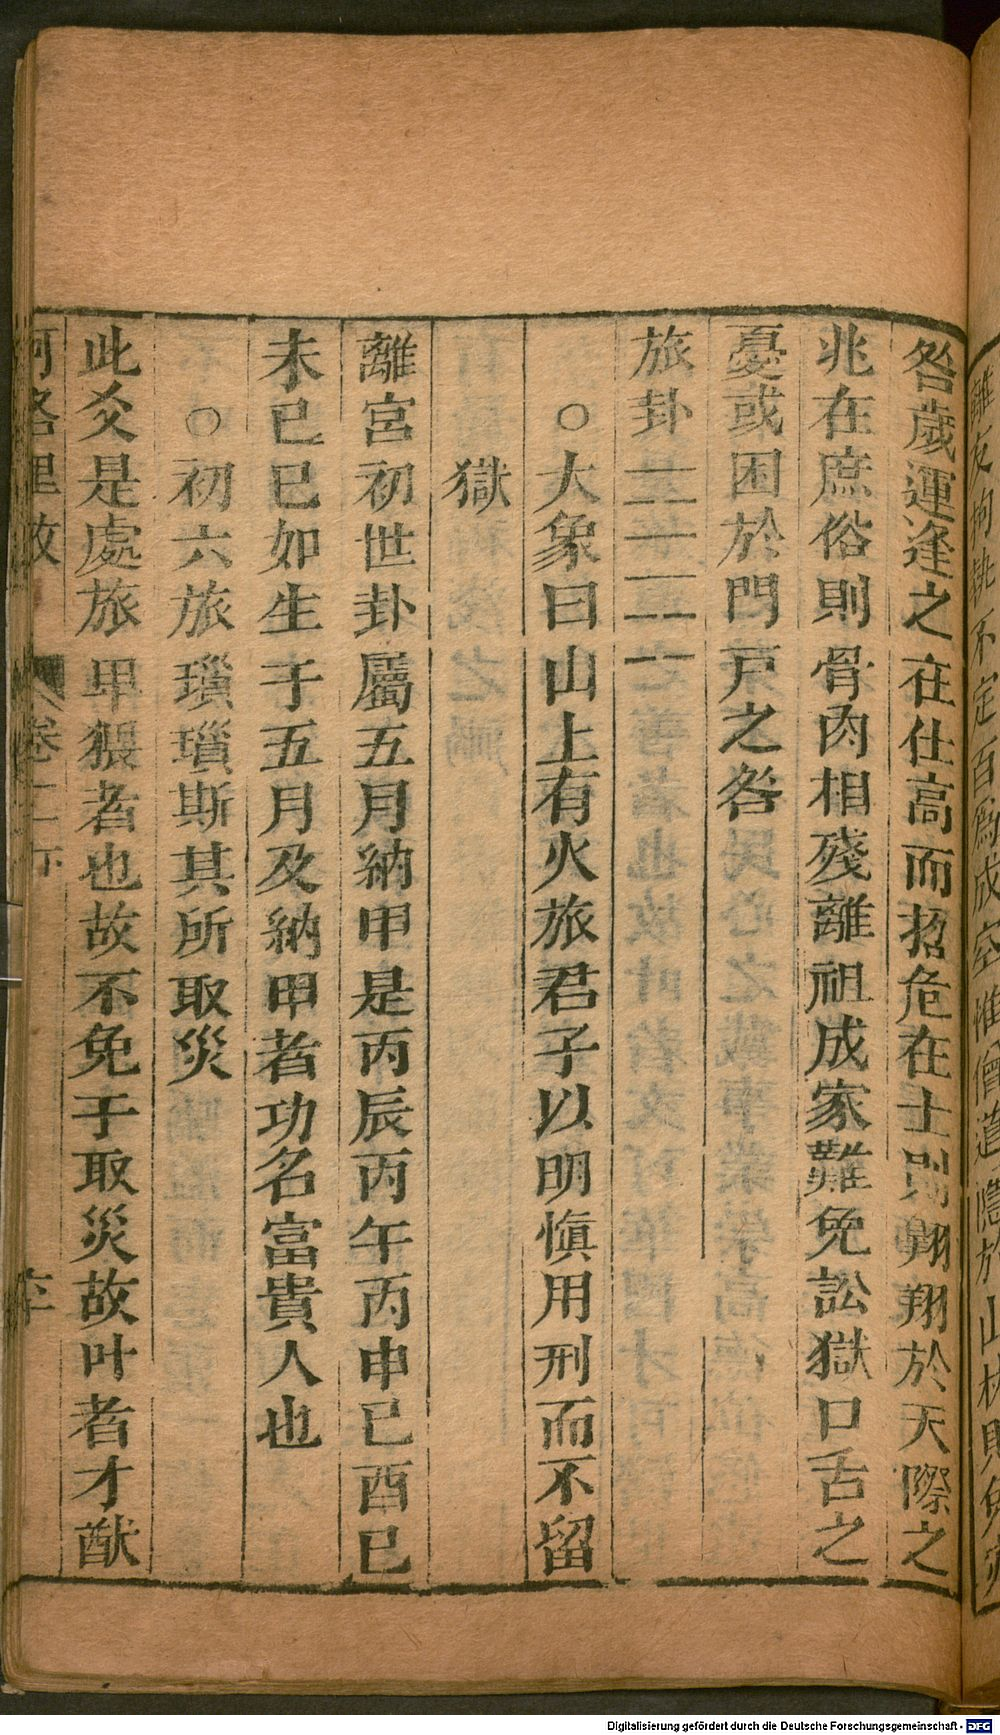 咎歲運逢之在仕高而招危在士則翺翔於天際之
兆在庶俗則骨肉相殘離祖成家難免訟獄口舌之
憂或困於門戸之咎
旅卦
○大象曰山上有火旅君子以明愼用刑而不留
獄
離宮初世卦屬五月納甲是丙辰丙午丙申已酉已
未已已如生于五月及納甲者功名富貴人也
○初六旅瑣瑣斯其所取災
此爻是處旅卑猥者也故不免于取災故叶者才猷
河洛里攷 卷二下
Digitalisierung gefördert durch die Deutsche Forschungsgemeinschaft - DFG